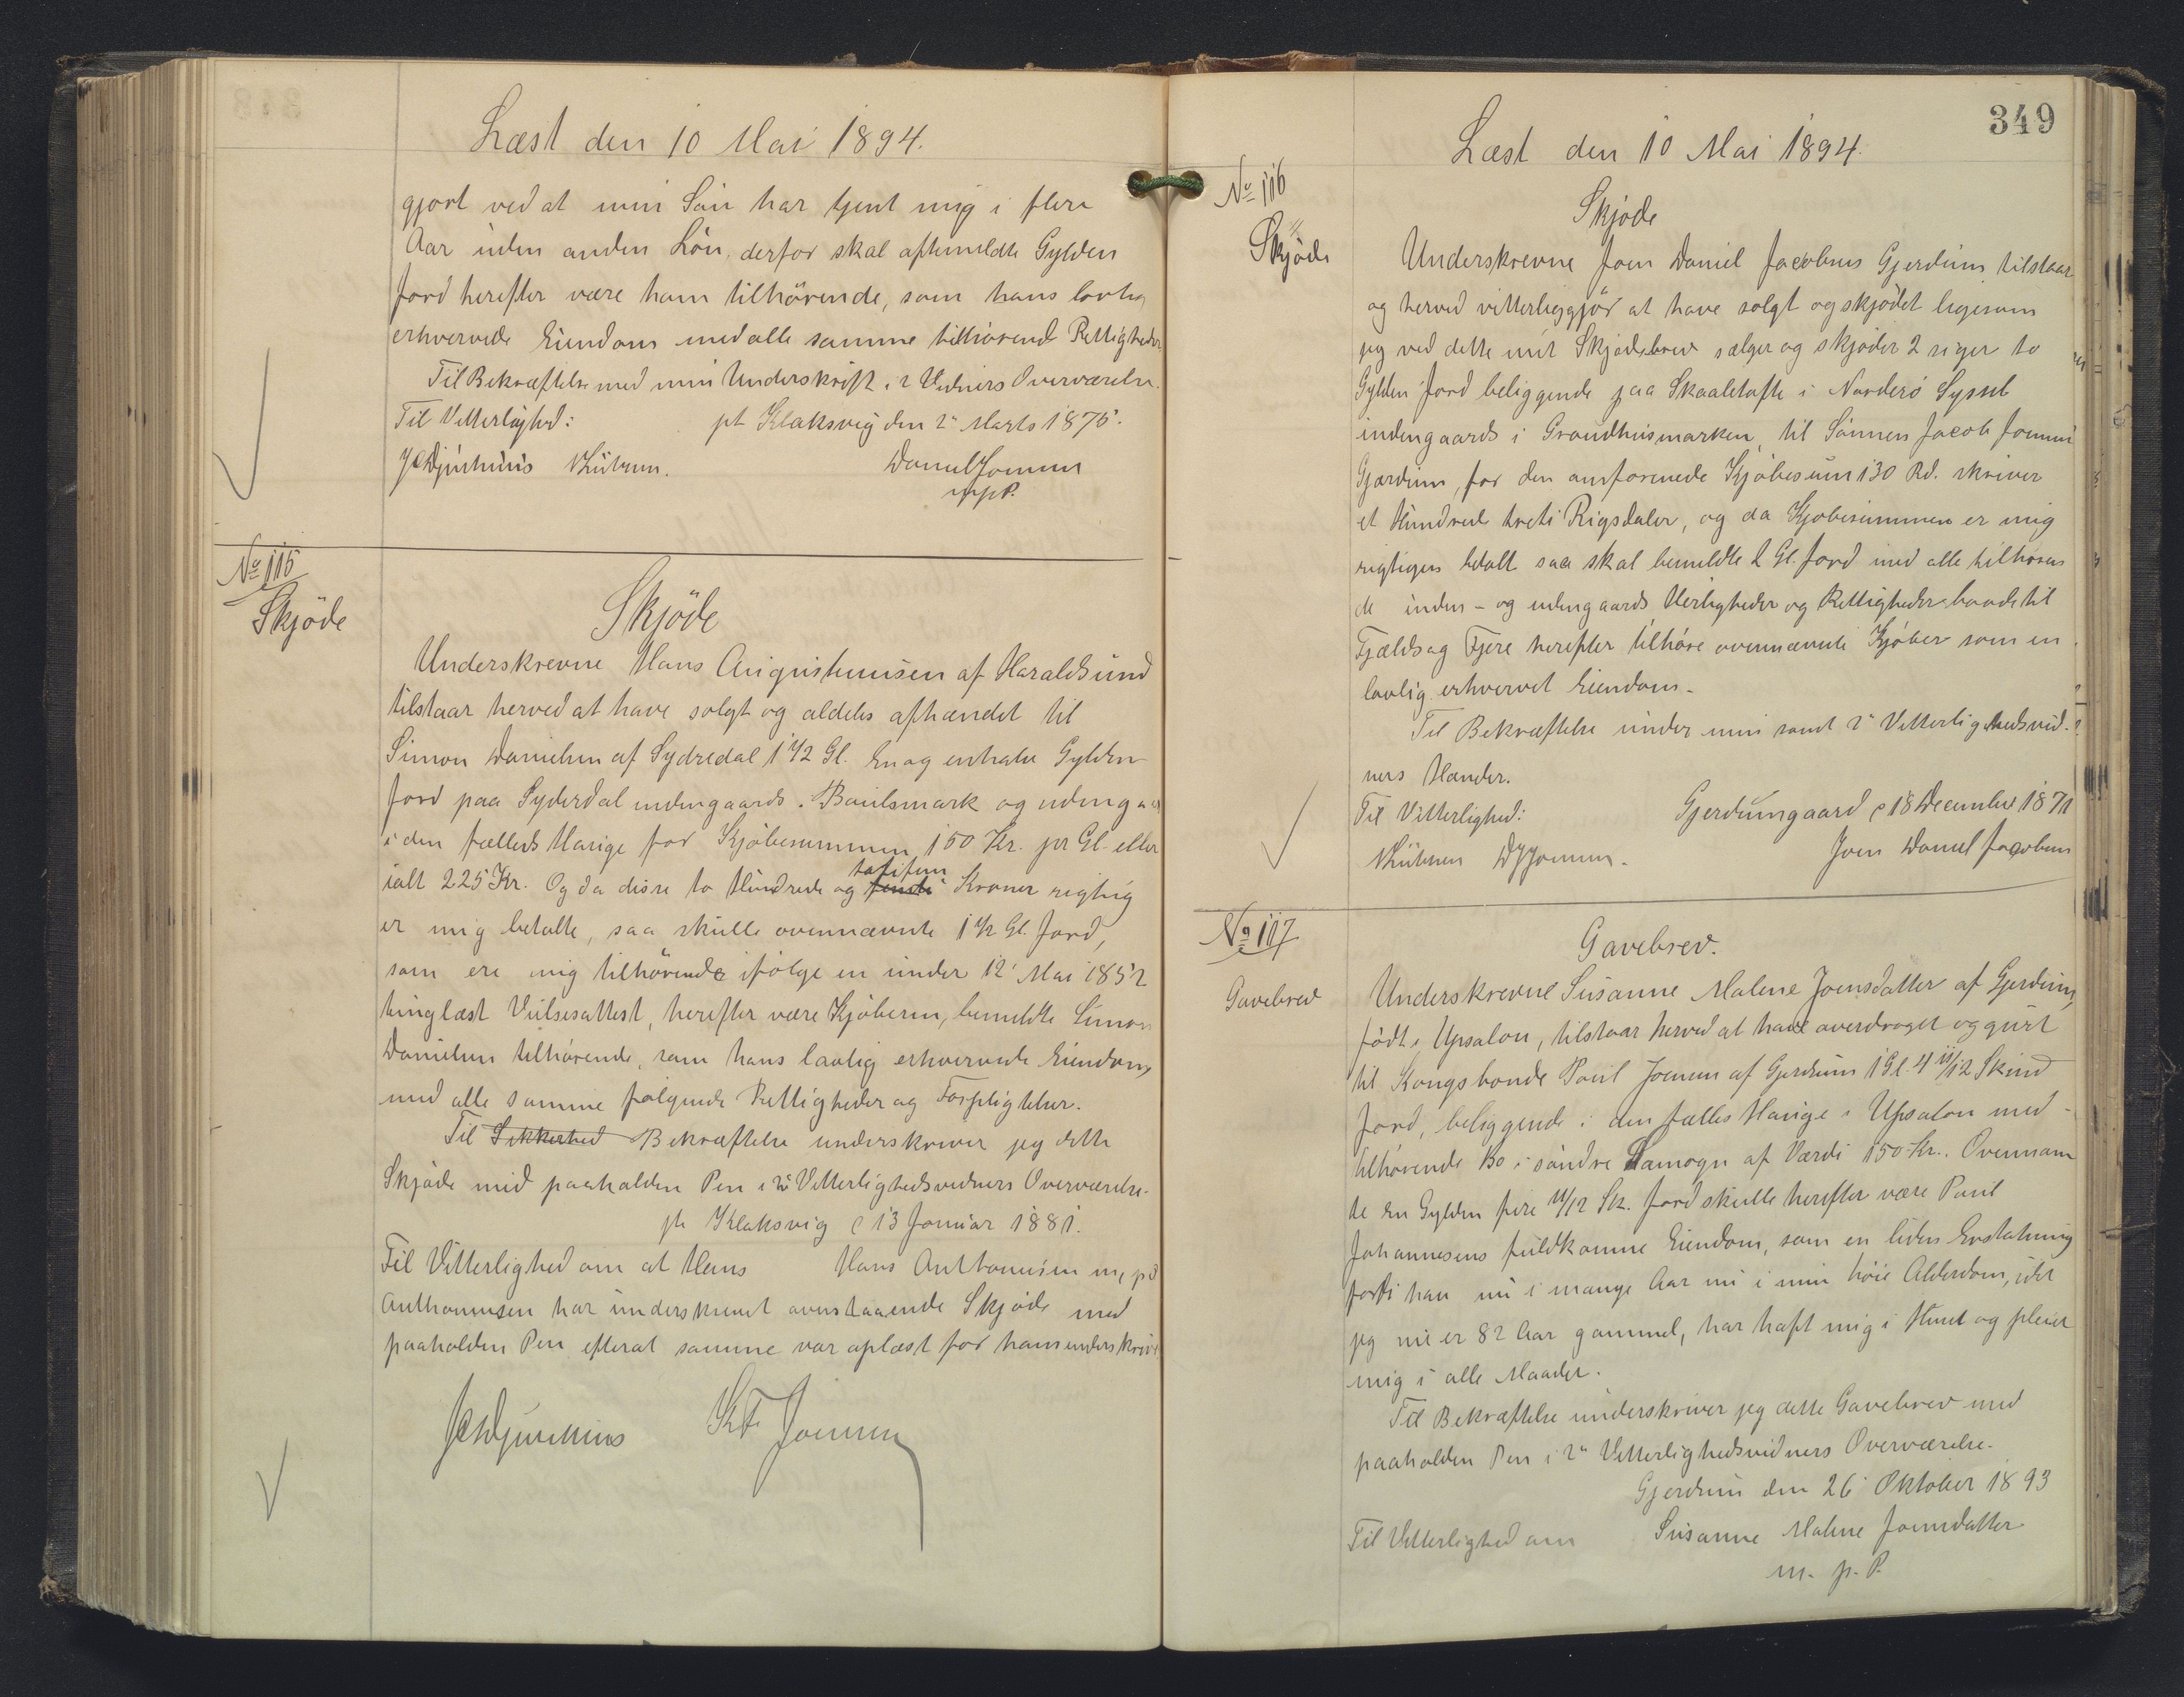 Læst den 10 Mai 1894.
gjort ved at min Sön har tjent mig i flere
Aar uden anden Lön, derfor skal aftemeldte Gylden
Jord herefter være ham tilhörende, som hans lovlig
erhvervede Eiendom med alle samme tilhörende Rettigheder
Til Bekræftelse med min Underskrift i 2 Vidners Overværelse.
Til Vitterlighed: pt Klaksvig den 2n Marts 1875.
Daniel Joensen
m. p. P.
No 115
Skjöde
Skjöde
Underskrevne Hans af Haraldsund
tilstaar herved at have solgt og aldeles afhændet til
Simon Danielsen af Sydredal 1 1/2 Gl. En og enhalv Gylden
Jord paa Syderdal indengaards. Böulsmark og udengaa
i den fælleds Hauge for Kjöbesummen 150 Kr. pr Gl. eller
ialt 225 Kr. Og da disse to Hundrede og totifem Kroner rigtig
er mig betalte, saa skulle ovennævnte 1 1/2 Gl. Jord,
som ere mig tilhörende ifölge en under 12' Mai 1852
tinglæst Vielsesattest, herefter være Kjöberen, bemeldte Simon
Danielsen tilhörende, som hans lovlig erhvervede Eiendom,
med alle samme fölgende Rettigheder og Forpligtelser.
Til Sikkerhed Bekræftelse underskriver jeg dette
Skjöde med paaholden Pen i 2n Vitterlighedsvidners Overværelse.
pt Klaksvig d 13 Januar 1881.
Til Vitterlighed om at Hans Hans Anthoniusen m. p. P
Anthoniusen har underskrevet ovenstaaende Skjöde med
paaholden Pen efterat samme var oplæst for ham underskrive
Joensen
349
Læst den 10 Mai 1894.
No 116
Skjöde
Skjöde
Underskrevne Joen Daniel Jacobsen Gjerdum tilstaar
og herved vitterliggjör at have solgt og skjödet ligesom
jeg ved dette mit Skjödebrev sælger og skjöder 2 siger to
Gylden Jord beliggende paa Skaaletofte i Norderö Syssel
indengaards i Grandhusmarken, til Sönnen Jacob Joensen
Gjærdum, for den omforenede Kjöbesum 130 Rd. skriver
et Hundrede treti Rigsdaler, og da Kjöbesummen er mig
rigtigen betalt saa skal bemeldte 2 Gl. Jord med alle tilhören
de inden- og udengaards Herligheder og Rettigheder baade til
Fjelds og Fjere herefter tilhöre ovennævnte Kjöber som en
lovlig erhvervet Eiendom.
Til Bekræftelse under min samt 2n Vitterlighedsvid-
ners Hænder.
Til Vitterlighed: Gjerdumgaard d 18 December 1871
Joen Daniel Jacobsen
No 117
Gavebrev
Gavebrev.
Underskrevne Susanne Malene Joensdatter af Gjerdum,
födt i Upsalon, tilstaar herved at have overdraget og givet
til Kongsbonde Poul Joensen af Gjerdum 1 Gl. 4 11/12 Skind
Jord, beliggende i den fælles Hauge i Upsalon med
tilhörende Bo i söndre Lamogn af Værdi 150 Kr.. Ovennævn
te En Gylden fire 11/12 Sk. Jord skulle herefter være Poul
Johannesens fuldkomne Eiendom, som en liden Erstatning
fordi han nu i mange Aar nu i min höie Alderdom, idet
jeg nu er 82 Aar gammel, har haft mig i Huset og pleiet
mig i alle Maader.
Til Bekræftelse underskriver jeg dette Gavebrev med
paaholden Pen i 2n Vitterlighedsvidners Overværelse.
Gjerdum den 26 Oktober 1893
Til Vitterlighed om Susanne Malene Joensdatter
m. p. P.